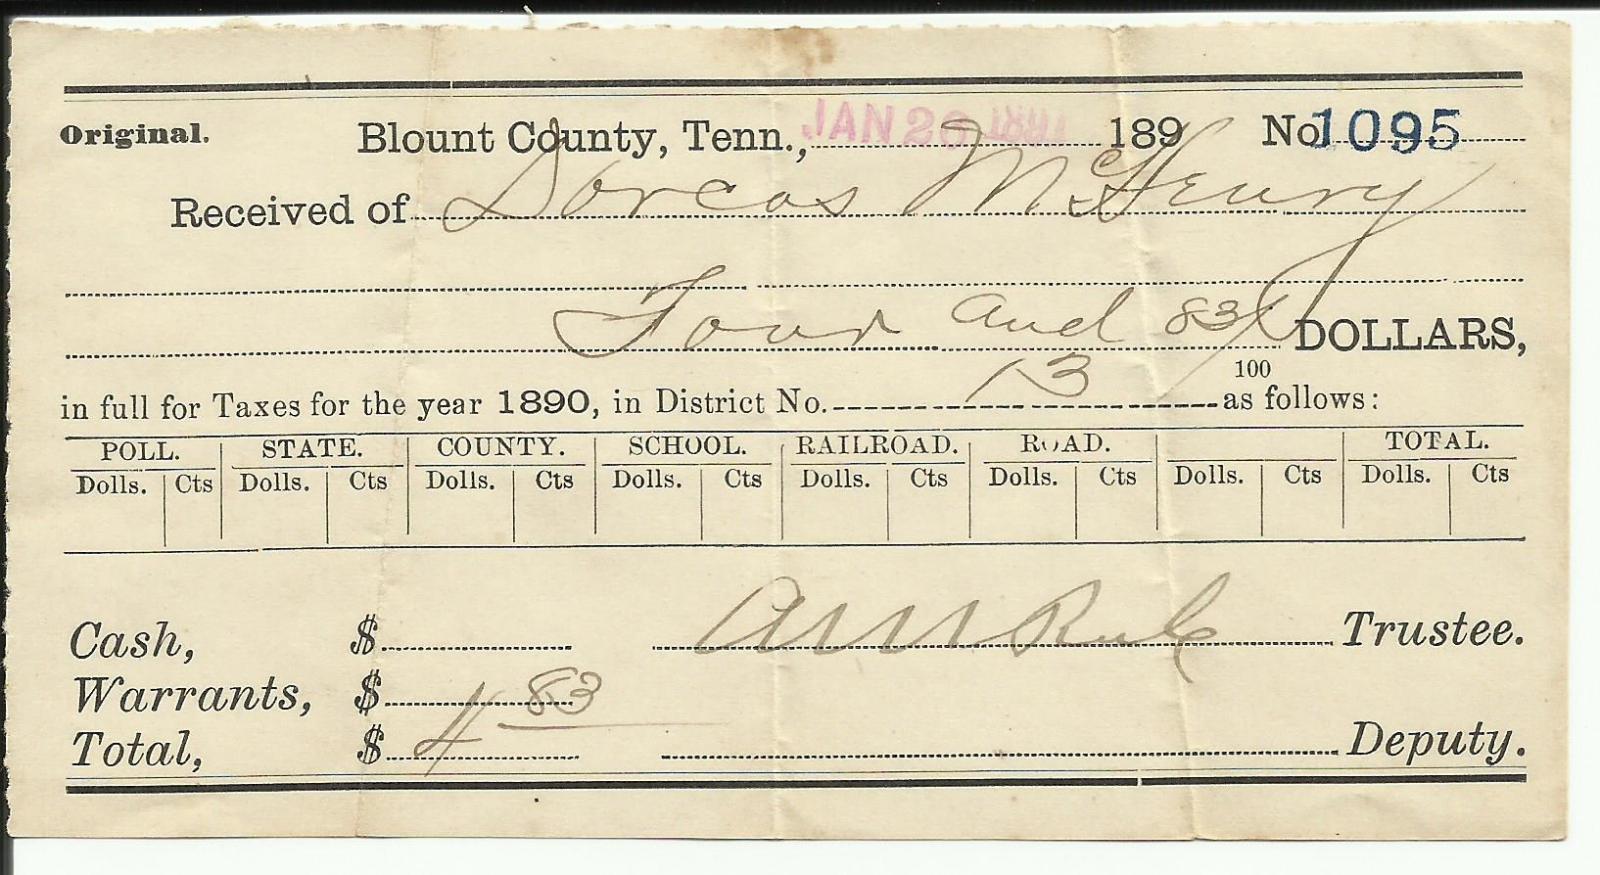 Original. Blount County, Tenn., JAN 20 1891 189 No 1095
Received of Dorcas McHenry
Four and 83/100 DOLLARS,
in full for Taxes for the year 1890, in District No. 13 as follows:
POLL. STATE. COUNTY. SCHOOL. RAILROAD. ROAD. TOTAL.
Dolls. Cts Dolls. Cts Dolls. Cts Dolls. Cts Dolls. Cts Dolls. Cts Dolls. Cts Dolls. Cts
Cash, $ Rule Trustee.
Warrants, $
Total, $ 4 83 Deputy.